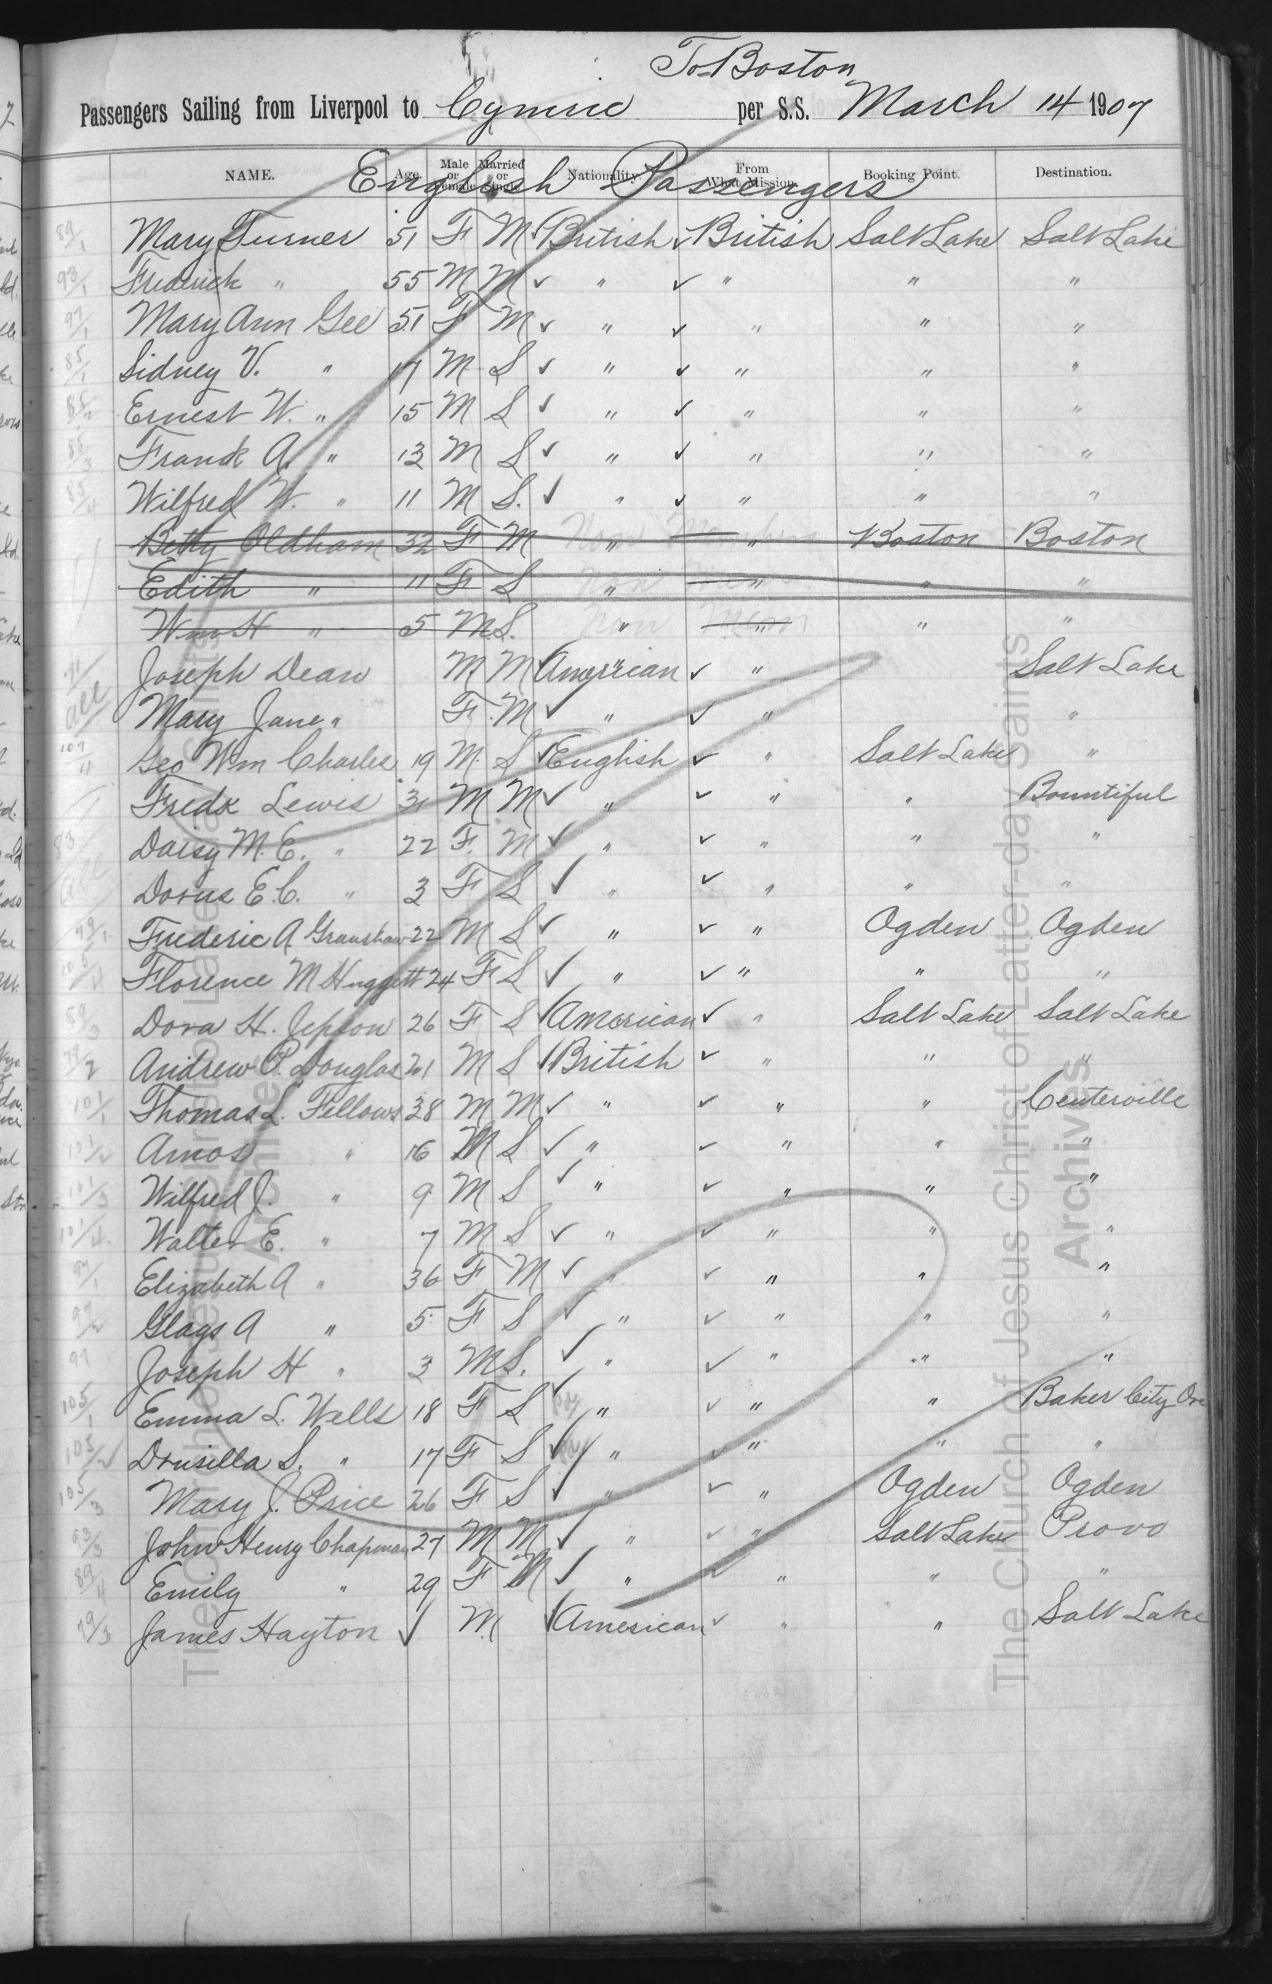 To Boston
Passengers Sailing from Liverpool to Cymric per S.S. March 14 1907
NAME. Age. Male or Female Married or Single Nationality. From What Mission. Booking Point. Destination.
English Passengers
89/1 Mary Turner 51 F M ✓ British ✓ British Salt Lake Salt Lake
93/1 Fredrick " 55 M M ✓ " ✓ " " "
97/1 Mary Ann Gee 51 F M ✓ " ✓ " " "
85/1 Sidney V. " 17 M S ✓ " ✓ " " "
85/2 Ernest W. " 15 M S ✓ " ✓ " " "
85/3 Frank A. " 13 M S ✓ " ✓ " " "
85/4 Wilfred W. " 11 M S. ✓ " ✓ " " "
Betty Oldham 32 F M " " Boston Boston
Edith " 11 F S " " " "
Wm H " 5 M S. " " " "
Joseph Dean M M ✓ American ✓ " Salt Lake
all Mary Jane " F M ✓ " ✓ " "
107/4 Geo Wm Charles 19 M S ✓ English ✓ " Salt Lake "
Fredk Lewis 31 M M ✓ " ✓ " " Bountiful
83 Daisy M. E. " 22 F M ✓ " ✓ " " "
all Dorus E. C. " 3 F S ✓ " ✓ " " "
99/1 Frederic A Granshaw 22 M S ✓ " ✓ " Ogden Ogden
Florence M Huggett 24 F S ✓ " ✓ " " "
89/3 Dora H. Jepson 26 F S ✓ American ✓ " Salt Lake Salt Lake
99/2 Andrew P. Douglas 21 M S ✓ British ✓ " " "
101/1 Thomas L. Fellows 38 M M ✓ " ✓ " " Centerville
101/2 Amos " 16 M S ✓ " ✓ " " "
101/3 Wilfred J. " 9 M S ✓ " ✓ " " "
101/4 Walter E. " 7 M S ✓ " ✓ " " "
97/1 Elizabeth A " 36 F M ✓ " ✓ " " "
97/2 Glays A " 5 F S ✓ " ✓ " " "
97 Joseph H " 3 M S. ✓ " ✓ " " "
105/1 Emma L. Wells 18 F S ✓ " ✓ " " Baker City Ore
105/2 Drusilla S. " 17 F S ✓ " ✓ " " "
105/3 Mary J. Price 26 F S ✓ " ✓ " Ogden Ogden
93/3 John Henry Chapman 27 M M ✓ " ✓ " Salt Lake Provo
89/4 Emily " 29 F M ✓ " ✓ " " "
79/3 James Hayton ✓ M ✓ American ✓ " " Salt Lake
The Church of Jesus Christ of Latter-day Saints
Archives
The Church of Jesus Christ of Latter-day Saints
Archives